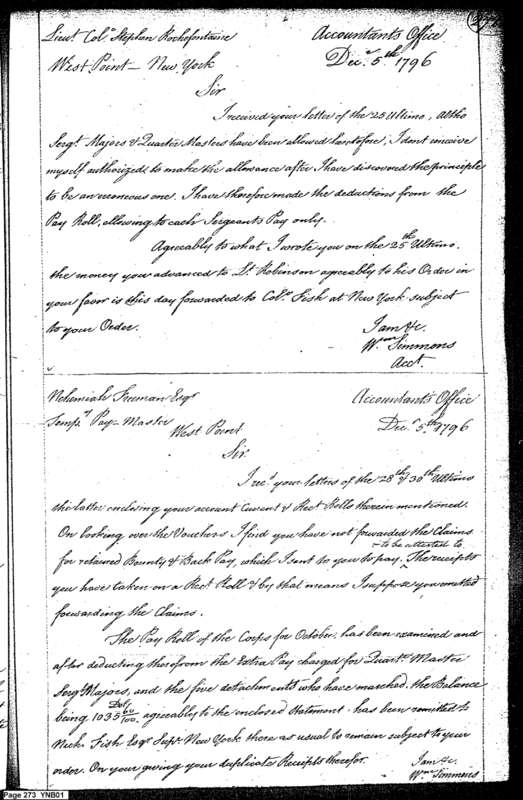 273
Lieut. Colo. Stephen Rochefontaine Accountants Office
West Point - New York Decr. 5th 1796
Sir
I received your letter of the 25 Ultimo, Altho
Sergt. Majors & Quarter Masters have been allowed heretofore, I dont conceive
myself authorized to make the allowance after I have discovered the principle
to be an erroneous one. I have therefore made the deductions from the
Pay Roll, allowing to each Sergeants Pay only.
Agreeably to what I wrote you on the 25th Ultimo,
the money you advanced to Lt. Robinson agreeably to his Order in
your favor is this day forwarded to Colo. Fish at New York subject
to your Order.
I am &c.
Wm. Simmons
Acct.
Nehemiah Freeman Esqr. Accountants Office
Tempy. Pay-Master Decr. 5th. 1796
West Point
Sir
I recd. your letters of the 28th & 30th Ultimo
the latter enclosing your account Current & Rect Rolls therein mentioned.
On looking over the Vouchers I find you have not forwarded the Claims
for retained Bounty & Back Pay, which I sent to you to pay, to be attested to. The receipts
you have taken on a Rect. Roll & by that means I suppose you omitted
forwarding the Claims.
The Pay Roll of the Corps for October, has been examined and
after deducting therefrom the Extra Pay charged for Quartr. Master
Sergts. Majors, and the five detachments who have marched, the Balance
being 1035 60/100 Dols. agreeably to the enclosed statement has been remitted to
Nichs. Fish Esqr. Supr. New York there as usual to remain subject to your
order. On your giving your duplicate Receipts therefor. I am &c.
Wm Simmons
Page 273 YNB01